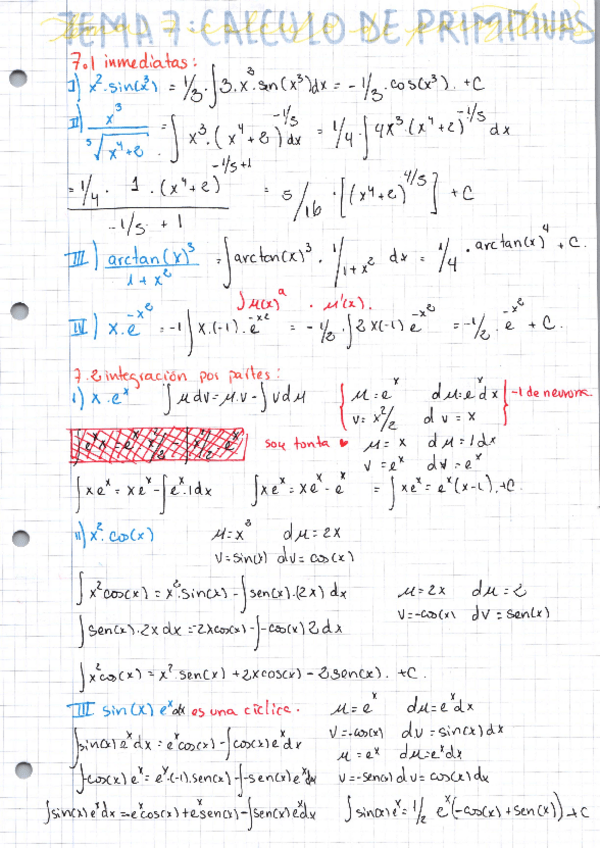 TEMA 7: CALCULO DE PRIMITIVAS
7.1 inmediatas:
I) x²·sin(x³) = 1/3·∫3·x·sen(x³)dx = -1/3·cos(x³). +C
II) x³/⁵√(x⁴+2) = ∫x³·(x⁴+2)^(-1/5) dx = 1/4·∫4x³·(x⁴+2)^(-1/5) dx
= 1/4· 1·(x⁴+2)^(-1/5+1) / (-1/5 + 1) = 5/16·[(x⁴+2)^(4/5)] +C
III) arctan(x)³/(1+x²) = ∫arctan(x)³·1/(1+x²) dx = 1/4·arctan(x)⁴ +C.
∫μ(x)^a · μ'(x).
IV) x·e^(-x²) = -1∫x·(-1)·e^(-x²) = -1/2·∫2x(-1) e^(-x²) = -1/2·e^(-x²) + C.
7.2 integración por partes:
I) x·e^x ∫μdv = μ·v - ∫vdμ { μ=e^x dμ=e^x dx
v=x²/2 dv=x } -1 de neurona
soy tonta ♥ μ=x dμ=1dx
v=e^x dv=e^x
∫xe^x = xe^x - ∫e^x·1dx ∫xe^x = xe^x - e^x = ∫xe^x = e^x(x-1).+C.
II) x²·cos(x) μ=x² dμ=2x
v=sin(x) dv=cos(x)
∫x²cos(x) = x²·sin(x) - ∫sen(x)·(2x) dx μ=2x dμ=2
v=-cos(x) dv=sen(x)
∫sen(x)·2x dx = -2xcos(x) - ∫-cos(x)2dx
∫x²cos(x) = x²·sen(x) + 2xcos(x) - 2sen(x). +C.
III sin(x) e^x dx es una cíclica. μ=e^x dμ=e^x dx
v=-cos(x) dv=sin(x)dx
∫sin(x)e^x dx = e^x cos(x) - ∫cos(x)e^x dx μ=e^x dμ=e^x dx
∫-cos(x)e^x = e^x·(-1)·sen(x) - ∫-sen(x)e^x dx v=-sen(x) dv=cos(x)dx
∫sin(x)e^x dx = -e^x cos(x) + e^x sen(x) - ∫sen(x)e^x dx ∫sin(x)e^x = 1/2 e^x(-cos(x) + sen(x)) + C